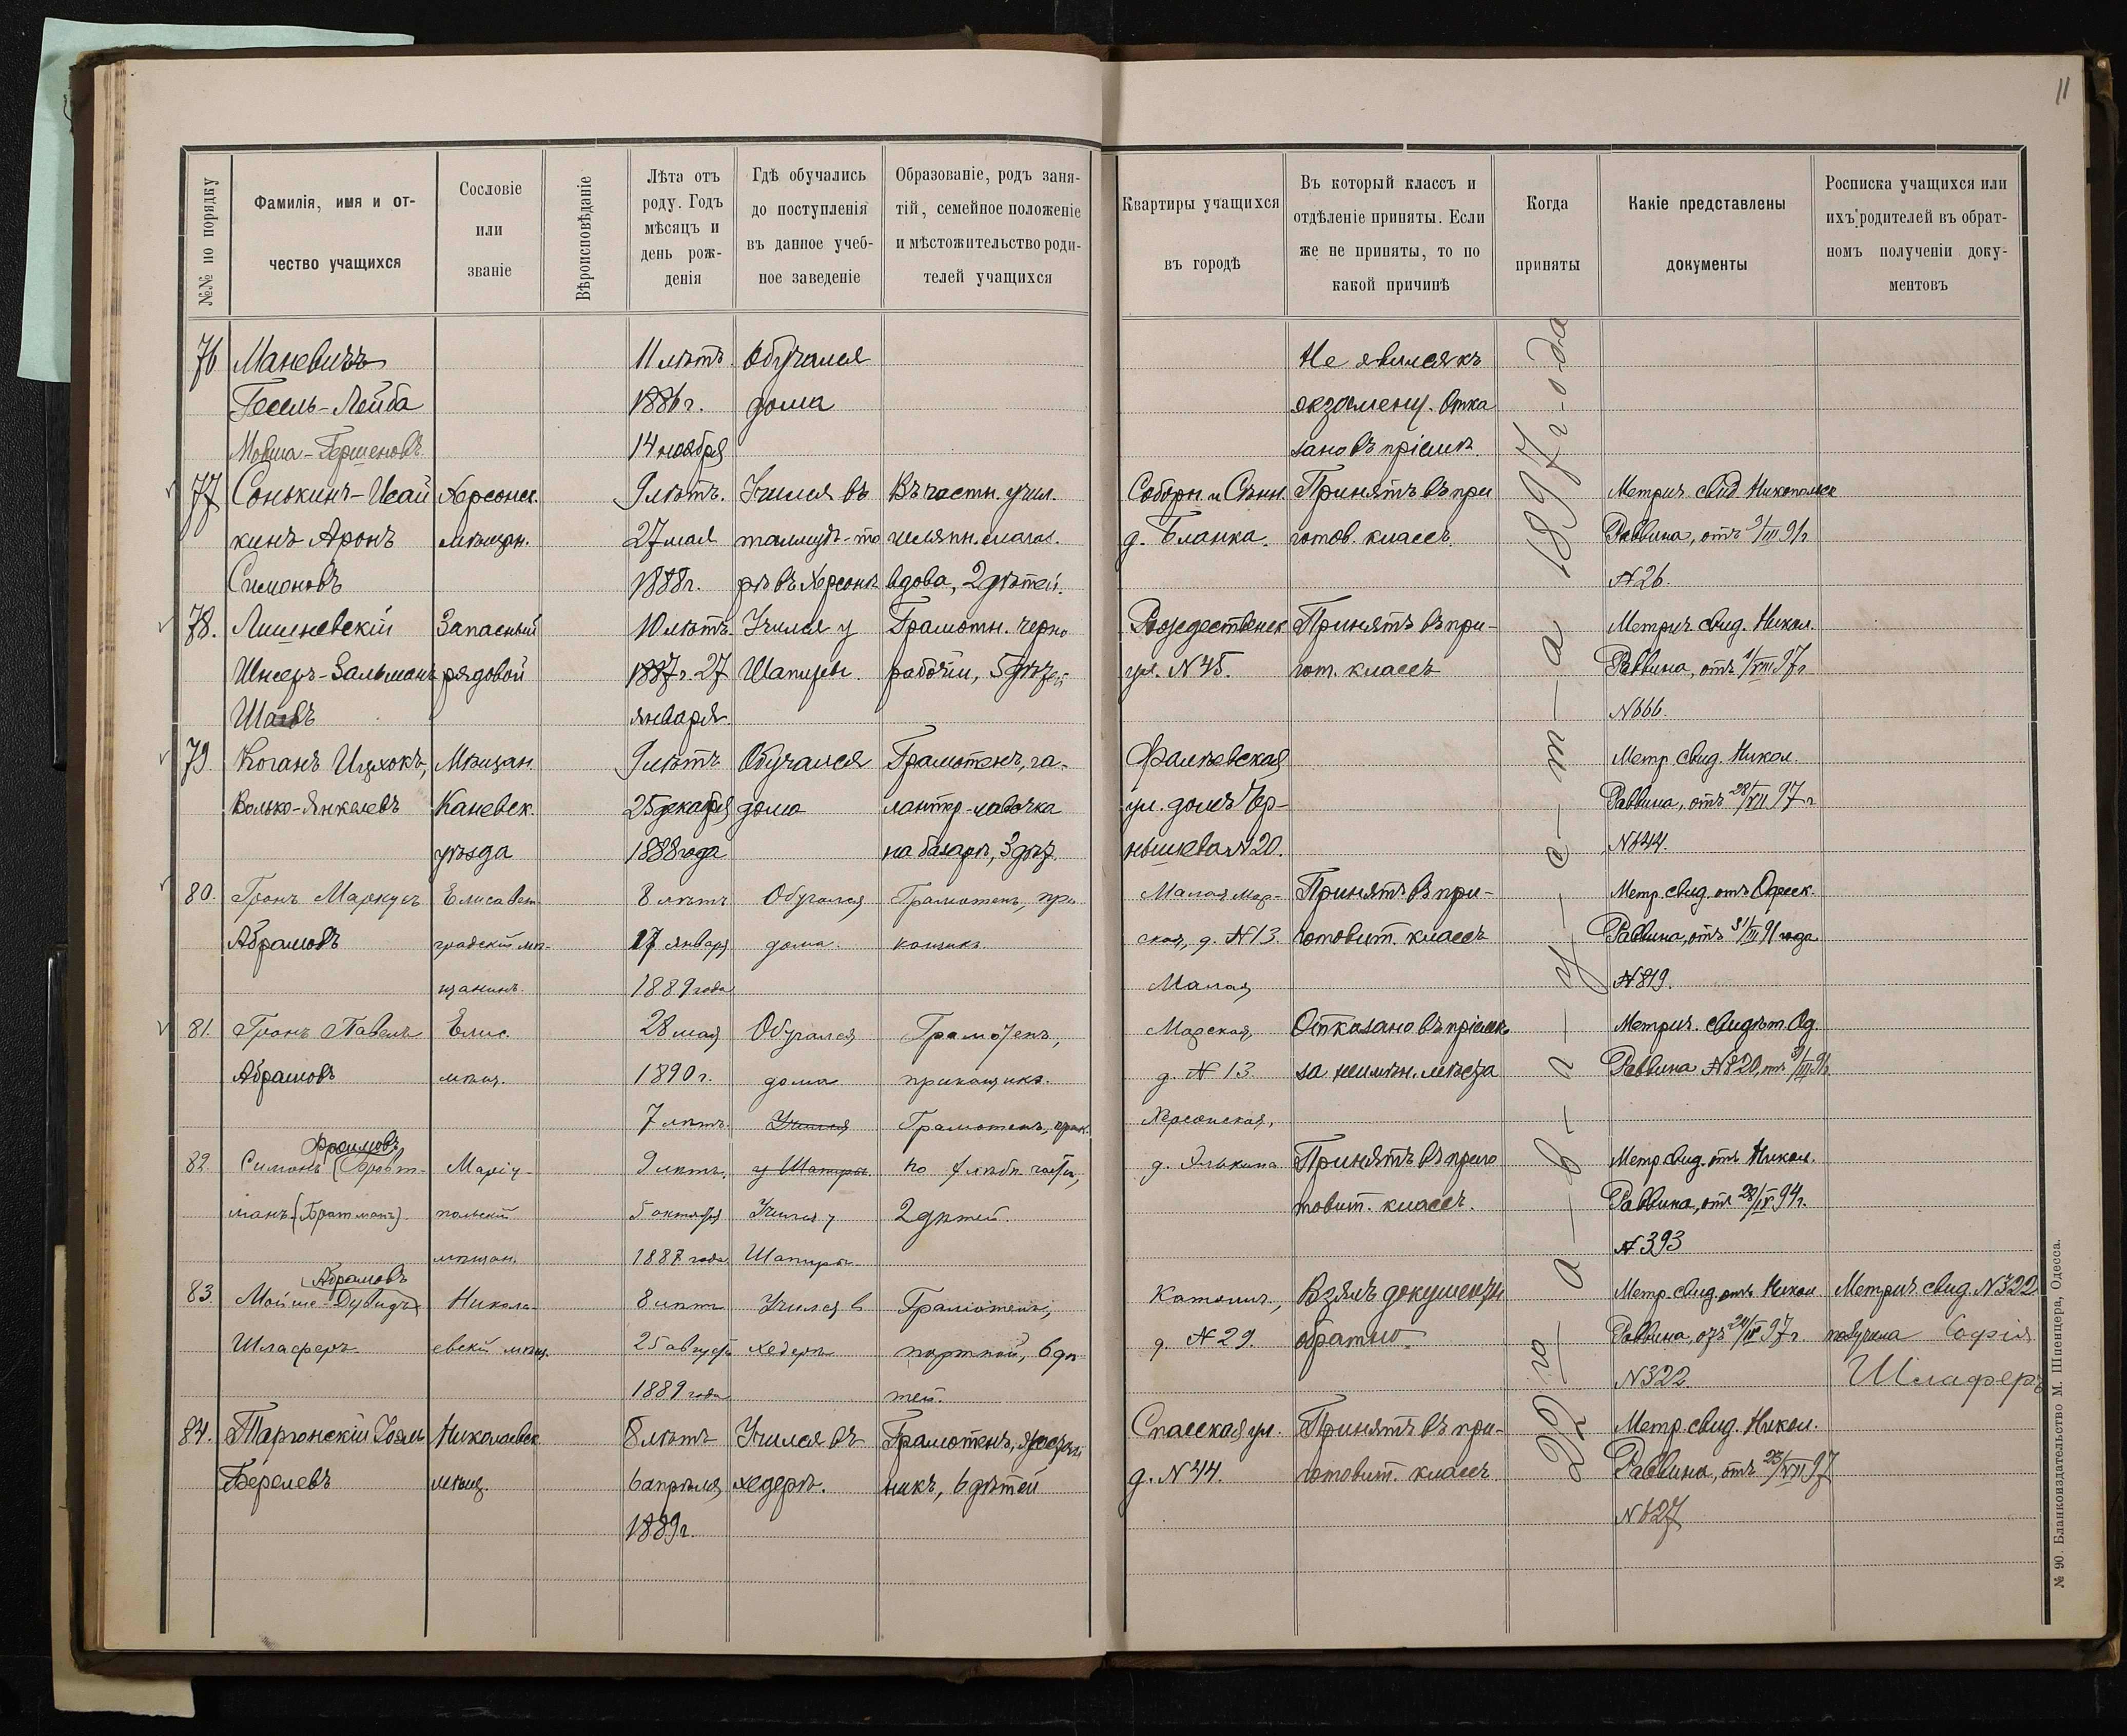 11
№№ по порядку
Фамилія, имя и от-
чество учащихся
Сословіе
или
званіе
Вѣроисповѣданіе
Лѣта отъ
роду. Годъ
мѣсяцъ и
день рож-
денія
Гдѣ обучались
до поступленія
въ данное учеб-
ное заведеніе
Образованіе, родъ заня-
тій, семейное положеніе
и мѣстожительство роди-
телей учащихся
Квартиры учащихся
въ городѣ
Въ который классъ и
отдѣленіе приняты. Если
же не приняты, то по
какой причинѣ
Когда
приняты
Какіе представлены
документы
Росписка учащихся или
ихъ родителей въ обрат-
номъ полученіи доку-
ментовъ
76
Маневичъ
Гесель-Лейба
Мовша-Гершеновъ
11 лѣтъ
1886 г.
14 ноября
Обучался
дома
Не явился къ
экзамену. Отка
зано въ пріемѣ
77
Сонькинъ-Исай
кинъ Аронъ
Симоновъ
Херсонск.
мѣщан.
9 лѣтъ.
27 мая
1888 г.
Учился въ
талмудъ-то
рѣ въ Херсонѣ
Въ частн. учил.
шляпн. магаз.
вдова, 2 дѣтей.
Соборн. и Сѣнн.
д. Бланка.
Принятъ въ при
готов. классъ.
Метрич. свид. Никопольск
Раввина, отъ 9/III 91 г
№ 26.
78.
Лишневскій
Шнеер-Зальманъ
Шаевъ
Запасный
рядовой
10 лѣтъ.
1887 г. 27
января
Учился у
Шапиры
Грамотн. черно
рабочій, 5 дѣтей
Рождественск
ул. № 45.
Принятъ въ при-
гот. классъ
Метрич. свид. Никол.
Раввина, отъ 1/VIII 97 г
№ 666.
79
Коганъ Ицхокъ,
Волько-Янкелевъ
Мѣщан.
Каневск.
уѣзда
9 лѣтъ
25 декабря
1888 года
Обучался
дома
Грамотенъ, га-
лантер. лавочка
на базарѣ, 3 дѣт.
Фалѣевская
ул. домъ Чер-
нышева № 20.
Метр. свид. Никол.
Раввина, отъ 28/VII 97 г
№ 644.
80.
Гронъ Маркусъ
Абрамовъ
Елисавет-
градскій мѣ-
щанинъ.
8 лѣтъ
17 января
1889 года
Обучался
дома.
Грамотенъ, при
кащикъ
Малая Мор-
ская, д. № 13.
Принятъ въ при-
готовит. классъ
Метр. свид. отъ Одесск.
Раввина, отъ 31/III 91 года
№ 819.
81.
Гронъ Павелъ
Абрамовъ
Елис.
мѣщ.
28 мая
1890 г.
7 лѣтъ
Обучался
дома
Грамотенъ,
прикащикъ.
Малая
Морская,
д. № 13.
Отказано въ пріемѣ
за неимѣн. мѣста
Метрич. свидѣт. Од.
Раввина № 820, отъ 31/III 91 г.
82.
Фроимовъ
Симонъ (Бровт-
манъ) (Братманъ)
Маріу-
польскій
мѣщан.
9 лѣтъ.
5 октября
1887 года
Учился
у Шапиры
Учился у
Шапиры
Грамотенъ, прик.
по хлѣбн. части,
2 дѣтей.
Херсонская,
д. Элькина
Принятъ въ приго
товит. классъ.
Метр. свид. отъ Никол.
Раввина, отъ 28/IV 94 г.
№ 393
83.
Абрамовъ
Мойше-Дувидъ
Шлаферъ
Никола-
евскій мѣщ.
8 лѣтъ
25 августа
1889 года
Учился в
хедерѣ
Грамотенъ,
портной, 6 дѣ-
тей.
Католич.,
д. № 29.
Взялъ документы
обратно.
Метр. свид. отъ Никол
Раввина, отъ 24/IV 97 г.
№ 322.
Метрич. свид. № 322
получила Софія
Шлаферъ
84.
Таргонскій Іоэль
Берелевъ
Николаевск
мѣщ.
8 лѣтъ
6 апрѣля
1889 г.
Учился въ
хедерѣ.
Грамотенъ, жестян
никъ, 6 дѣтей
Спасская ул.
д. № 44.
Принятъ въ при-
готовит. классъ
Метр. свид. Никол.
Раввина, отъ 23/VII 97
№ 627
22 го — а — в — г — у — с — т — а 1897 г-о-да
№ 90. Бланкоиздательство М. Шпенцера, Одесса.